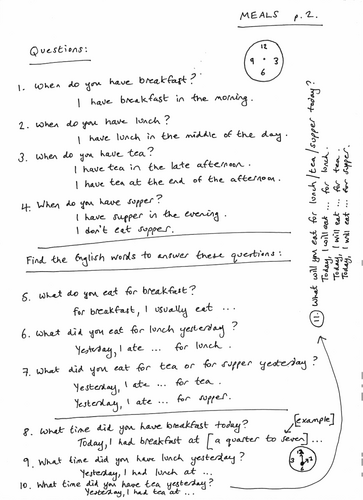 MEALS p.2.
Questions:
12
9 3
6
1. When do you have breakfast?
I have breakfast in the morning.
2. When do you have lunch?
I have lunch in the middle of the day.
3. When do you have tea?
I have tea in the late afternoon.
I have tea at the end of the afternoon.
4. When do you have supper?
I have supper in the evening.
I don't eat supper.
Find the English words to answer these questions:
5. What do you eat for breakfast?
For breakfast, I usually eat ...
6. What did you eat for lunch yesterday?
Yesterday, I ate ... for lunch.
7. What did you eat for tea or for supper yesterday?
Yesterday, I ate ... for tea.
Yesterday, I ate ... for supper.
8. What time did you have breakfast today? [example]
Today, I had breakfast at [a quarter to seven] ...
9. What time did you have lunch yesterday?
Yesterday, I had lunch at ...
10. What time did you have tea yesterday?
Yesterday, I had tea at ...
11. What will you eat for lunch/tea/supper today?
Today, I will eat ... for lunch.
Today, I will eat ... for tea.
Today, I will eat ... for supper.